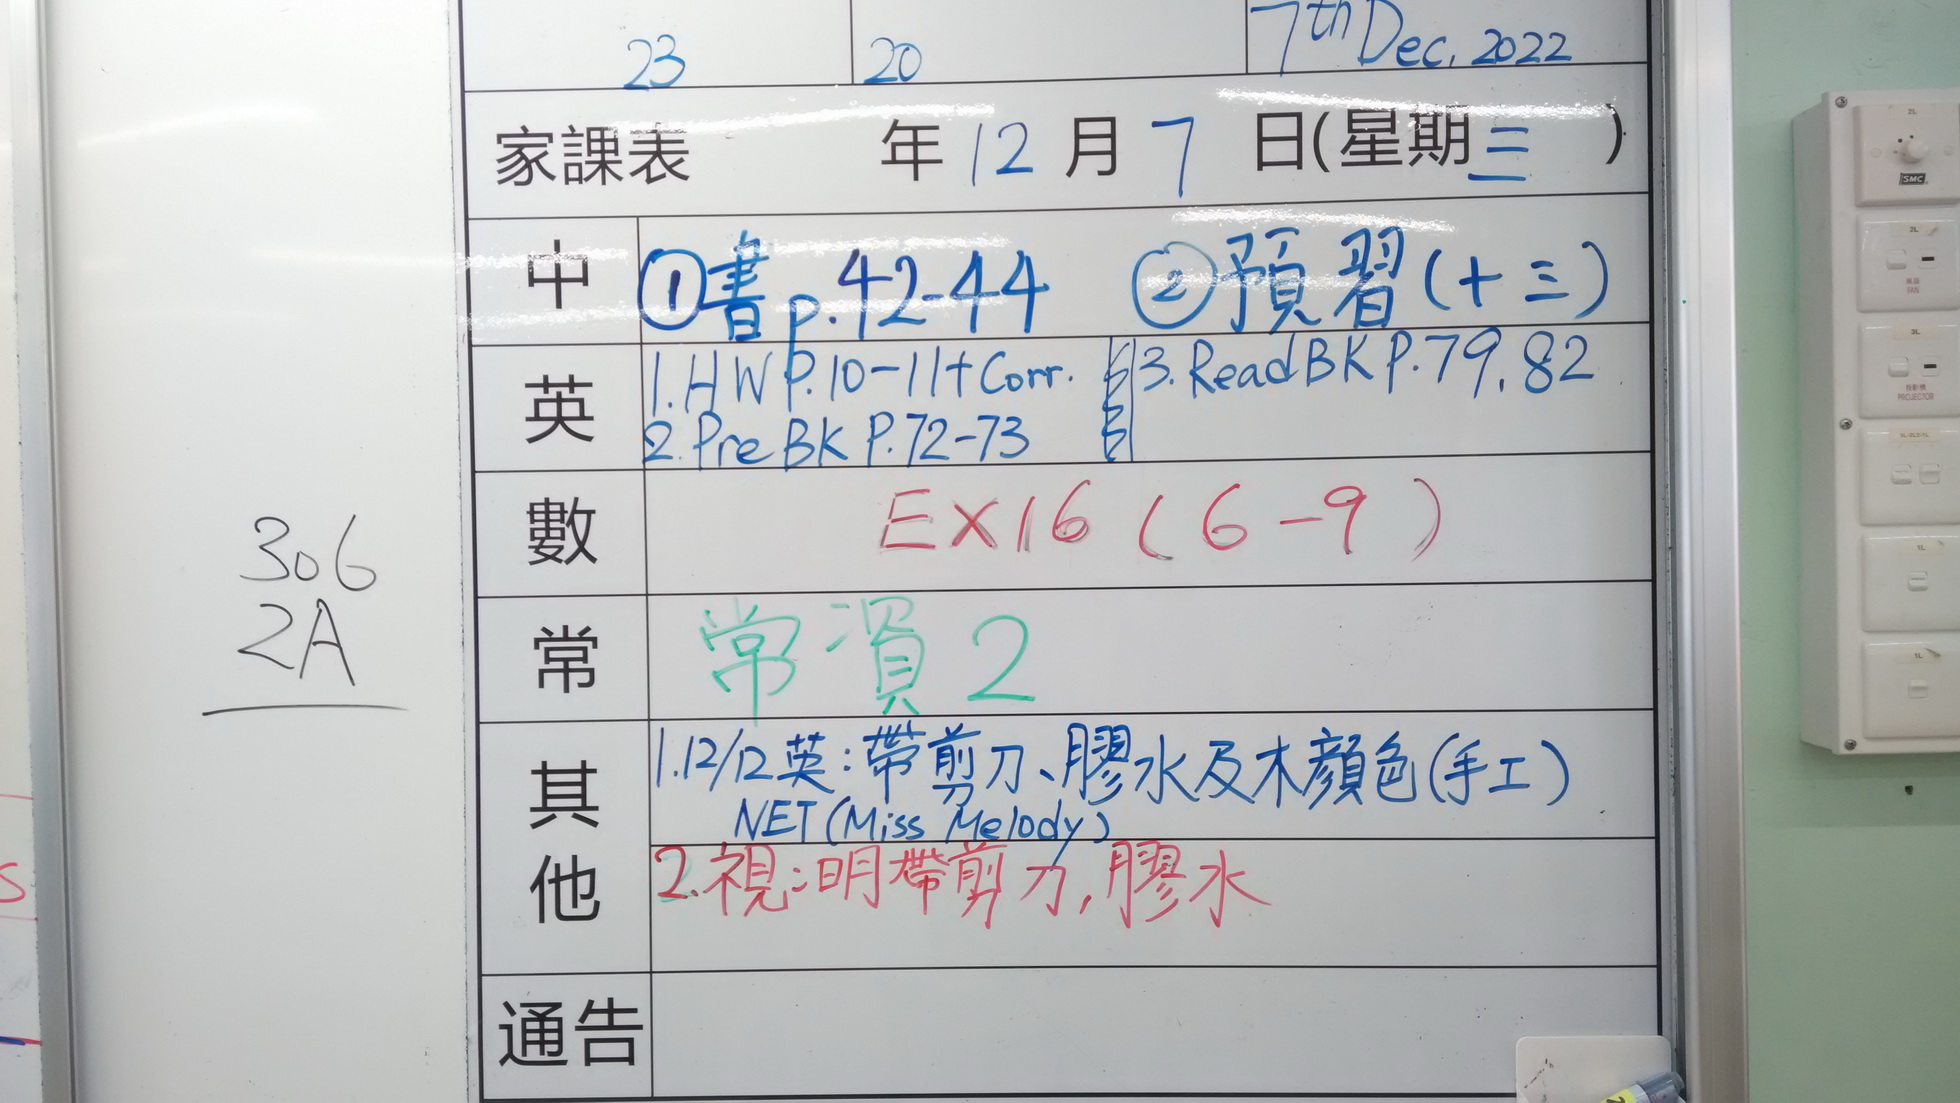 23 20 7th Dec. 2022
家課表 年 12 月 7 日(星期三)
中 ①書p.42-44 ②預習(十三)
英 1. HW P.10-11+Corr. 3. Read BK P.79, 82
2. Pre BK P.72-73
數 EX16 (6-9)
306
2A
常 常 2
其他
1. 12/12 英:帶剪刀、膠水及木顏色(手工)
NET (Miss Melody)
2. 視:明帶剪刀,膠水
通告
SMC
2L
2L
FAN
3L
PROJECTOR
1L
1L